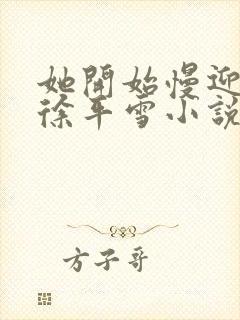 她開始慢迎
徐平雪小說
方子哥